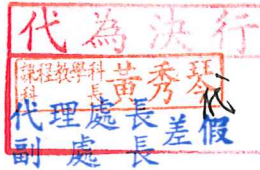 代為決行
課程教學科
科長 黃秀琴
代理處長
副處長 差假